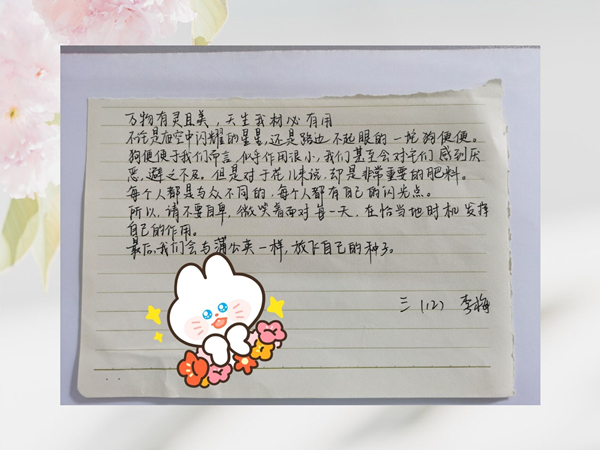 万物有灵且美，天生我材必有用
不论是夜空中闪耀的星星，还是路边不起眼的一坨狗便便。
狗便便于我们而言，似乎作用很小，我们甚至会对它们感到厌
恶，避之不及。但是对于花儿来说，却是非常重要的肥料。
每个人都是与众不同的，每个人都有自己的闪光点。
所以，请不要自卑，微笑着面对每一天，在恰当地时机发挥
自己的作用。
最后，我们会与蒲公英一样，放飞自己的种子。
三（12） 李梅